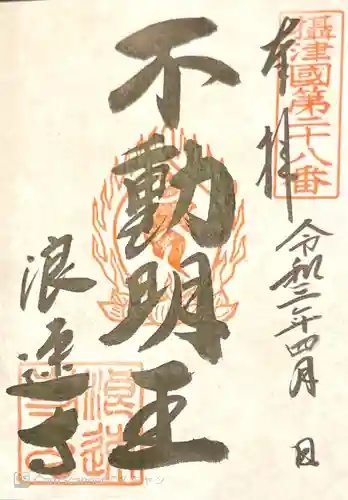 攝津國第二十八番
奉拝
令和三年四月 日
不動明王
浪速寺
浪速寺